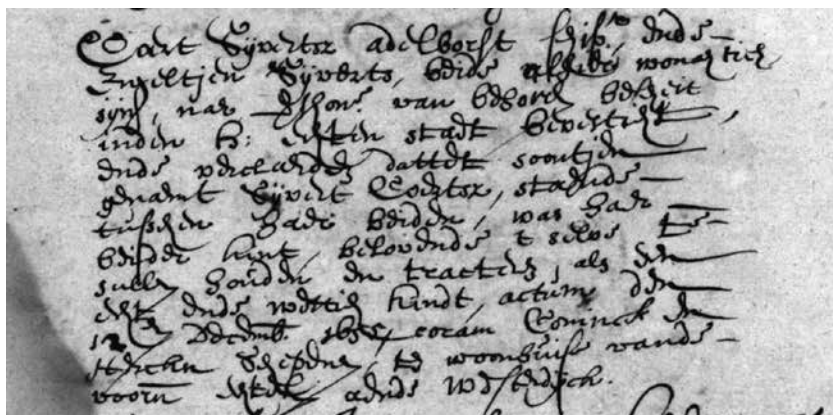 Coert Sijvertsz adelborst ende
Engeltjen Sijverts, beide alhier wonachtich
sijnde, nae van behoorl bescheit
inden h: echten staedt bevesticht,
ende verclaerden dattet soontjen
genaemt Sijvert Coertsz, staende
tusschen haer beiden, was haer
beider kint, belovende t selve te
sullen houden en tracteren, als een
echt ende wettich kindt, actum den
12 Decemb. 1655, coram Coninck en
Schepenen, te woonhuise vande
voorn aende Westerdijck.